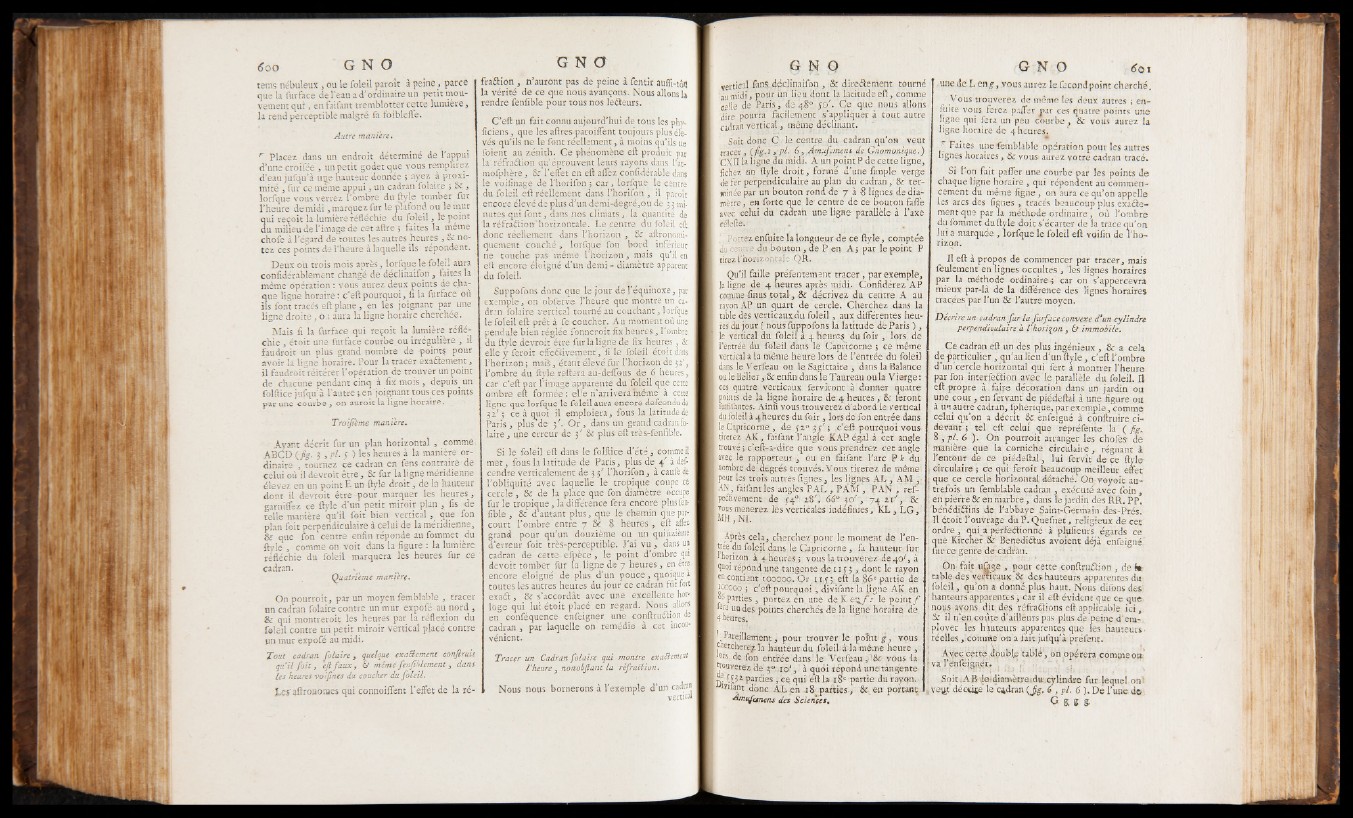 600 G N O
tems nébuleux, ou le soleil paroît à peine, parce
que la surface de l'eau a d'ordinaire un petit mou-
vement qui, en faisant tremblotter cette lumière,
la rend perceptible malgré sa foiblesse.
Autre manière.
Placez dans un endroit déterminé de l'appui
d'une croisée, un petit godet que vous remplirez
d'eau jusqu'à une hauteur donnée ; ayez à proxi-
mité, sur ce même appui, un cadran solaire ; &,
lorsque vous verrez l'ombre du style tomber sur
l'heure de midi, marquez sur le plafond ou le mur
qui reçoit la lumière réfléchie du soleil, le point
du milieu de l'image de cet astre ; faites la même
chose à l'égard de toutes les autres heures, & no-
tez ces points de l'heure à laquelle ils répondent.
Deux ou trois mois après, lorsque le soleil aura
considérablement changé de déclinaison, faites la
même opération : vous aurez deux points de cha-
que ligne horaire : c'est pourquoi, si la surface où
ils sont tracés est plane, en les joignant par une
ligne droite, on aura la ligne horaire cherchée.
Mais si la surface qui reçoit la lumière réflé-
chie, étoit une surface courbe ou irrégulière, il
faudroit un plus grand nombre de points pour
avoir la ligne horaire. Pour la tracer exactement,
il faudroit réitérer l'opération de trouver un point
de chacune pendant cinq à six mois, depuis un
solstice jusqu'à l'autre ; en joignant tous ces points
par une courbe, on auroit la ligne horaire.
Troisième manière.
Ayant décrit sur un plan horizontal, comme
ABCD (fig. 3, pl. 5) les heures à la manière or-
dinaire, tournez ce cadran en sens contraire de
celui où il devroit être, & sur la ligne méridienne
élevez en un point E un style droit, de la hauteur
dont il devroit être pour marquer les heures,
garnissez ce style d'un petit miroir plan, fis de
telle manière qu'il soit bien vertical, que son
plan soit perpendiculaire à celui de la méridienne,
& que son centre enfin réponde au sommet du
style, comme on voit dans la figure : la lumière
réfléchie du soleil marquera les heures sur ce
cadran.
Quatrième manière.
On pourroit, par un moyen semblable, tracer
un cadran solaire contre un mur exposé au nord,
& qui montreroit les heures par la réflexion du
soleil contre un petit miroir vertical placé contre
un mur exposé au midi.
Tout cadran solaire, quelque exactement construit
qu'il soit, est faux, & même sensiblement, dans
les heures voisines du coucher du soleil.
Les astronomes qui connoissent l'effet de la ré-
G N O
fraction, n'auront pas de peine à sentir aussi-tôt
la vérité de ce que nous avançons. Nous allons la
rendre sensible pour tous nos lecteurs.
C'est un fait connu aujourd'hui de tous les phy-
siciens, que les astres paroissent toujours plus éle-
vés qu'ils ne le sont réellement, à moins qu'ils ne
soient au zénith. Ce phénomène est produit par
la réfraction qu'éprouvent leurs rayons dans l'at-
mosphère, & l'effet en est assez considérable dans
le voisinage de l'horison ; car, lorsque le centre
du soleil est réellement dans l'horison, il paroît
encore élevé de plus d'un demi-degré, ou de 33 mi-
nutes qui font, dans nos climats, la quantité de
la réfraction horizontale. Le centre du soleil est
donc réellement dans l'horizon, & astronomi-
quement couché, lorsque son bord inférieur
ne touche pas même l'horizon, mais qu'il en
est encore éloigné d'un demi-diamètre apparent
du soleil.
Supposons donc que le jour de l'équinoxe, par
exemple, on observe l'heure que montre un ca-
dran solaire vertical tourné au couchant, lorsque
le soleil est prêt à se coucher. Au moment où une
pendule bien réglée sonneroit six heures, l'ombre
du style devroit être sur la ligne de six heures, &
elle y seroit effectivement, si le soleil étoit dans
l'horizon ; mais, étant élevé sur l'horizon de 32',
l'ombre du style restera au-dessous de 6 heures,
car c'est par l'image apparente du soleil que cette
ombre est formée : elle n'arrivera même à cette
ligne que lorsque le soleil aura encore descendu de
32' ; ce à quoi il emploiera, sous la latitude de
Paris, plus de 3'. Or, dans un grand cadran so-
laire, une erreur de 3' & plus est très-sensible.
Si le soleil est dans le solstice d'été, comme il
met, sous la latitude de Paris, plus de 4' à des-
cendre verticalement de 33' l'horison, à cause de
l'obliquité avec laquelle le tropique coupe ce
cercle, & de la place que son diamètre occupe
sur le tropique, la différence sera encore plus sen-
sible, & d'autant plus, que le chemin que par-
court l'ombre entre 7 & 8 heures, est assez
grand pour qu'un douzième ou un quinzième
d'erreur soit très-perceptible. J'ai vu, dans un
cadran de cette espèce, le point d'ombre qui
devoit tomber sur la ligne de 7 heures, en être
encore éloigné de plus d'un pouce, quoique à
toutes les autres heures du jour ce cadran fût fort
exact, & s'accordât avec une excellente hor-
loge qui lui étoit placé en regard. Nous allons
en conséquence enseigner une construction de
cadran, par laquelle on remédie à cet incon-
vénient.
Tracer un Cadran solaire qui montre exactement
l'heure, nonobstant la réfraction.
Nous nous bornerons à l'exemple d'un cadran
vertical
G N O
vertical sans déclinaison, & directement tourné
au midi, pour un lieu dont la latitude est, comme
celle de Paris, de 48° 50'. Ce que nous allons
dire pourra facilement s'appliquer à tout autre
cadran vertical, même déclinant.
Soit donc C le centre du cadran qu'on veut
tracer, (fig. 2, pl. 6, Amusemens de Gnomonique.)
CXII la ligne du midi. A un point P de cette ligne,
fichez un style droit, formé d'une simple verge
de fer perpendiculaire au plan du cadran, & ter-
minée par un bouton rond de 7 à 8 lignes de dia-
mètre, en sorte que le centre de ce bouton fasse
avec celui du cadran une ligne parallèle à l'axe
céleste.
Portez ensuite la longueur de ce style, comptée
du centre du bouton, de P en A ; par le point P
tirez l'horizontale QR.
Qu'il faille présentement tracer, par exemple,
la ligne de 4 heures après midi. Considerez AP
comme sinus total, & décrivez du centre A au
rayon AP un quart de cercle. Cherchez dans la
table des verticaux du soleil, aux différentes heu-
res du jour (nous supposons la latitude de Paris),
le vertical du soleil à 4 heures du soir, lors de
l'entrée du soleil dans le Capricorne ; ce même
vertical à la même heure lors de l'entrée du soleil
dans le Verseau ou le Sagittaire, dans la Balance
ou le Belier, & enfin dans le Taureau ou la Vierge :
ces quatre verticaux serviront à donner quatre
points de la ligne horaire de 4 heures, & seront
suffisantes. Ainsi vous trouverez d'abord le vertical
du soleil à 4 heures du soir, lors de son entrée dans
le Capricorne, de 52° 35' ; c'est pourquoi vous
tirerez AK, faisant l'angle KAP égal à cet angle
trouvé ; c'est-à-dire que vous prendrez cet angle
avec le rapporteur, ou en faisant l'arc P k du
nombre de degrés trouvés. Vous tirerez de même
pour les trois autres signes, les lignes AL, AM,
AN, faisant les angles PAL, PAM, PAN, res-
pectivement de 54° 28', 66° 40', 74 21', &
vous menerez les verticales indéfinies, KL, LG,
MH, NI.
Après cela, cherchez pour le moment de l'en-
trée du soleil dans le Capricorne, sa hauteur sur
l'horizon à 4 heures ; vous la trouverez de 40', à
quoi répond une tangente de 1153, dont le rayon
en contient 100000. Or 1153 est la 86e partie de
100000 ; c'est pourquoi, divisant la ligne AK en
86 parties, portez en une de K en f : le point f
sera un des points cherchés de la ligne horaire de
4 heures.
Pareillement, pour trouver le point g, vous
chercherez la hauteur du soleil à la même heure,
lors de son entrée dans le Verseau, & vous la
trouverez de 3° 10', à quoi répond une tangente
de 5532 parties, ce qui est la 18e partie du rayon.
Divisant donc AL en 18 parties, & en portant
Amusemens des Sciences.
G N O 601
une de L en g, vous aurez le second point cherché.
Vous trouverez de même les deux autres ; en-
suite vous ferez passer par ces quatre points une
ligne qui sera un peu courbe, & vous aurez la
ligne horaire de 4 heures.
Faites une semblable opération pour les autres
lignes horaires, & vous aurez votre cadran tracé.
Si l'on fait passer une courbe par les points de
chaque ligne horaire, qui répondent au commen-
cement du même signe, on aura ce qu'on appelle
les arcs des signes, tracés beaucoup plus exacte-
ment que par la méthode ordinaire, où l'ombre
du sommet du style doit s'écarter de la trace qu'on
lui a marquée, lorsque le soleil est voisin de l'ho-
rizon.
Il est à propos de commencer par tracer, mais
seulement en lignes occultes, les lignes horaires
par la méthode ordinaire ; car on s'appercevra
mieux par-là de la différence des lignes horaires
tracées par l'un & l'autre moyen.
Décrire un cadran sur la surface convexe d'un cylindre
perpendiculaire à l'horizon, & immobile.
Ce cadran est un des plus ingénieux, & a cela
de particulier, qu'au lieu d'un style, c'est l'ombre
d'un cercle horizontal qui sert à montrer l'heure
par son intersection avec le parallèle du soleil. Il
est propre à faire décoration dans un jardin ou
une cour, en servant de piédestal à une figure ou
à un autre cadran, sphérique, par exemple, comme
celui qu'on a décrit & enseigné à construire ci-
devant ; tel est celui que représente la (fig.
8, pl. 6). On pourroit arranger les choses de
manière que la corniche circulaire, régnant à
l'entour de ce piédestal, lui servît de ce style
circulaire ; ce qui feroit beaucoup meilleur effet
que ce cercle horizontal détaché. On voyoit au-
trefois un semblable cadran, exécuté avec soin,
en pierre & en marbre, dans le jardin des RR. PP.
bénédictins de l'abbaye Saint-Germain des-Prés.
Il étoit l'ouvrage du P. Quesnet, religieux de cet
ordre, qui a perfectionné à plusieurs égards ce
que Kircher & Benedictus avoient déjà enseigné
sur ce genre de cadran.
On fait usage, pour cette construction, de la
table des verticaux & des hauteurs apparentes du
soleil, qu'on a donné plus haut. Nous disons des
hauteurs apparentes, car il est évident que ce que
nous avons dit des réfractions est applicable ici,
& il n'en coûte d'ailleurs pas plus de peine d'em-
ployer les hauteurs apparentes que les hauteurs
réelles, comme on a fait jusqu'à présent.
Avec cette double table, on opérera comme on
va l'enseigner.
Soit AB le diamètre du cylindre sur lequel on
veut décrire le cadran (fig. 6, pl. 6). De l'une de
G g g g